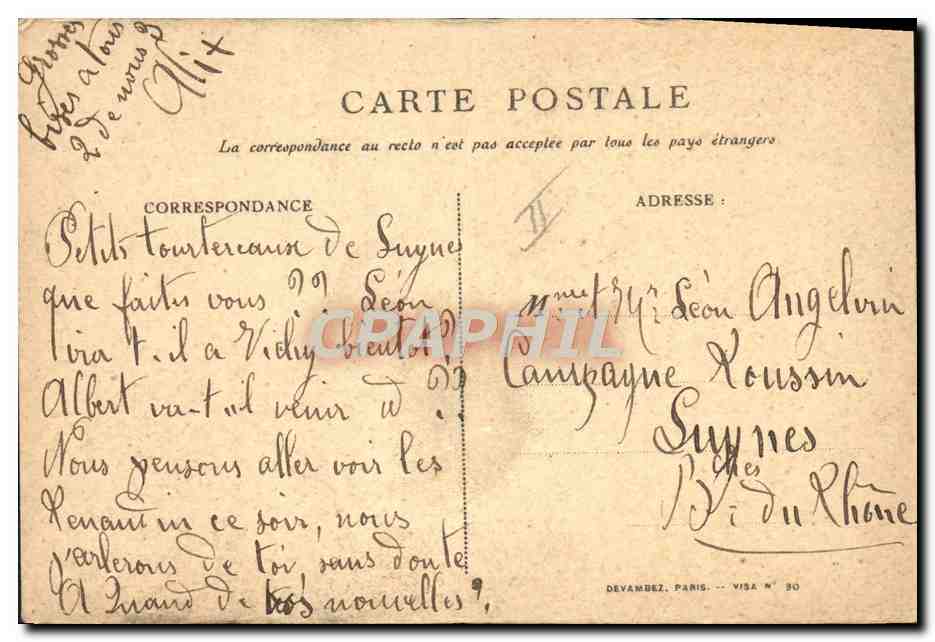 Grosses
bises a tous
2 de nous 3
Alix
CARTE POSTALE
La correspondance au recto n'est pas acceptée par tous les pays étrangers
CORRESPONDANCE
Petits tourtereaux de Luynes
que faites vous ?? Léon
ira t-il a Vichy bientôt?
Albert va-t-il venir ??
Nous pensons aller voir les
ce soir, nous
parlerons de toi, sans doute
A Quand de vos nouvelles?
II
ADRESSE :
Mme et Mr Léon Angelvin
Campagne Roussin
Luynes
Bches du Rhône
DEVAMBEZ, PARIS. -- VISA N° 90
CPAPHIL